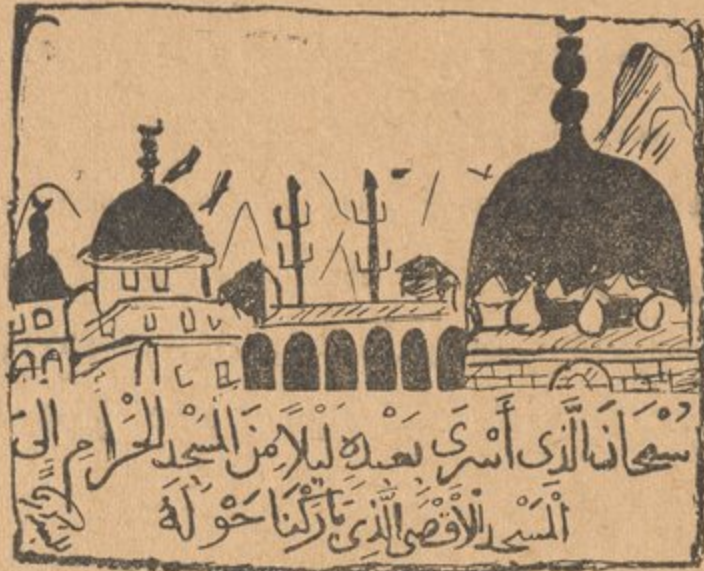 سُبْحَانَ الَّذِى أَسْرَى بِعَبْدِهِ لَيْلًا مِنَ الْمَسْجِدِ الْحَرَامِ إِلَى
الْمَسْجِدِ الْأَقْصَى الَّذِى بَارَكْنَا حَوْلَهُ